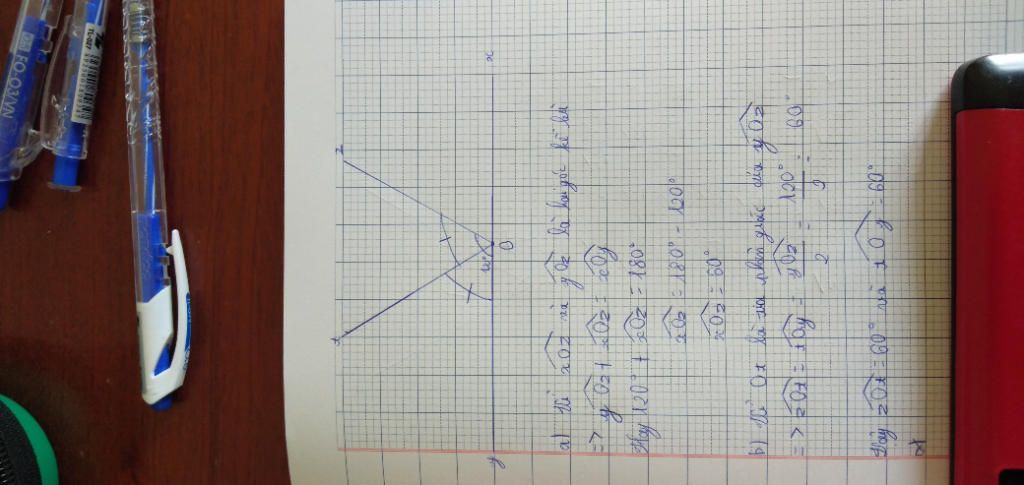 t z
y O x
a) Vì xOz và yOz là hai góc kề bù
=> yOz + xOz = xOy
Hay 120° + xOz = 180°
xOz = 180° - 120°
xOz = 60°
b) Vì Ot là tia phân giác của yOz
=> zOt = tOy = yOz/2 = 120°/2 = 60°
Vậy zOt = 60° và tOy = 60°
FO-03/VN
TL-027